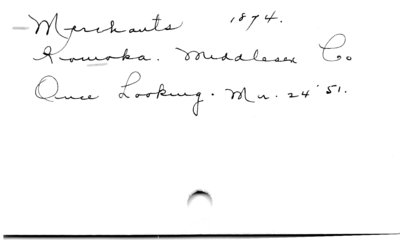 Merchants 1874.
Komoka. Middlesex Co
Once Looking. Mr. 24 '51.